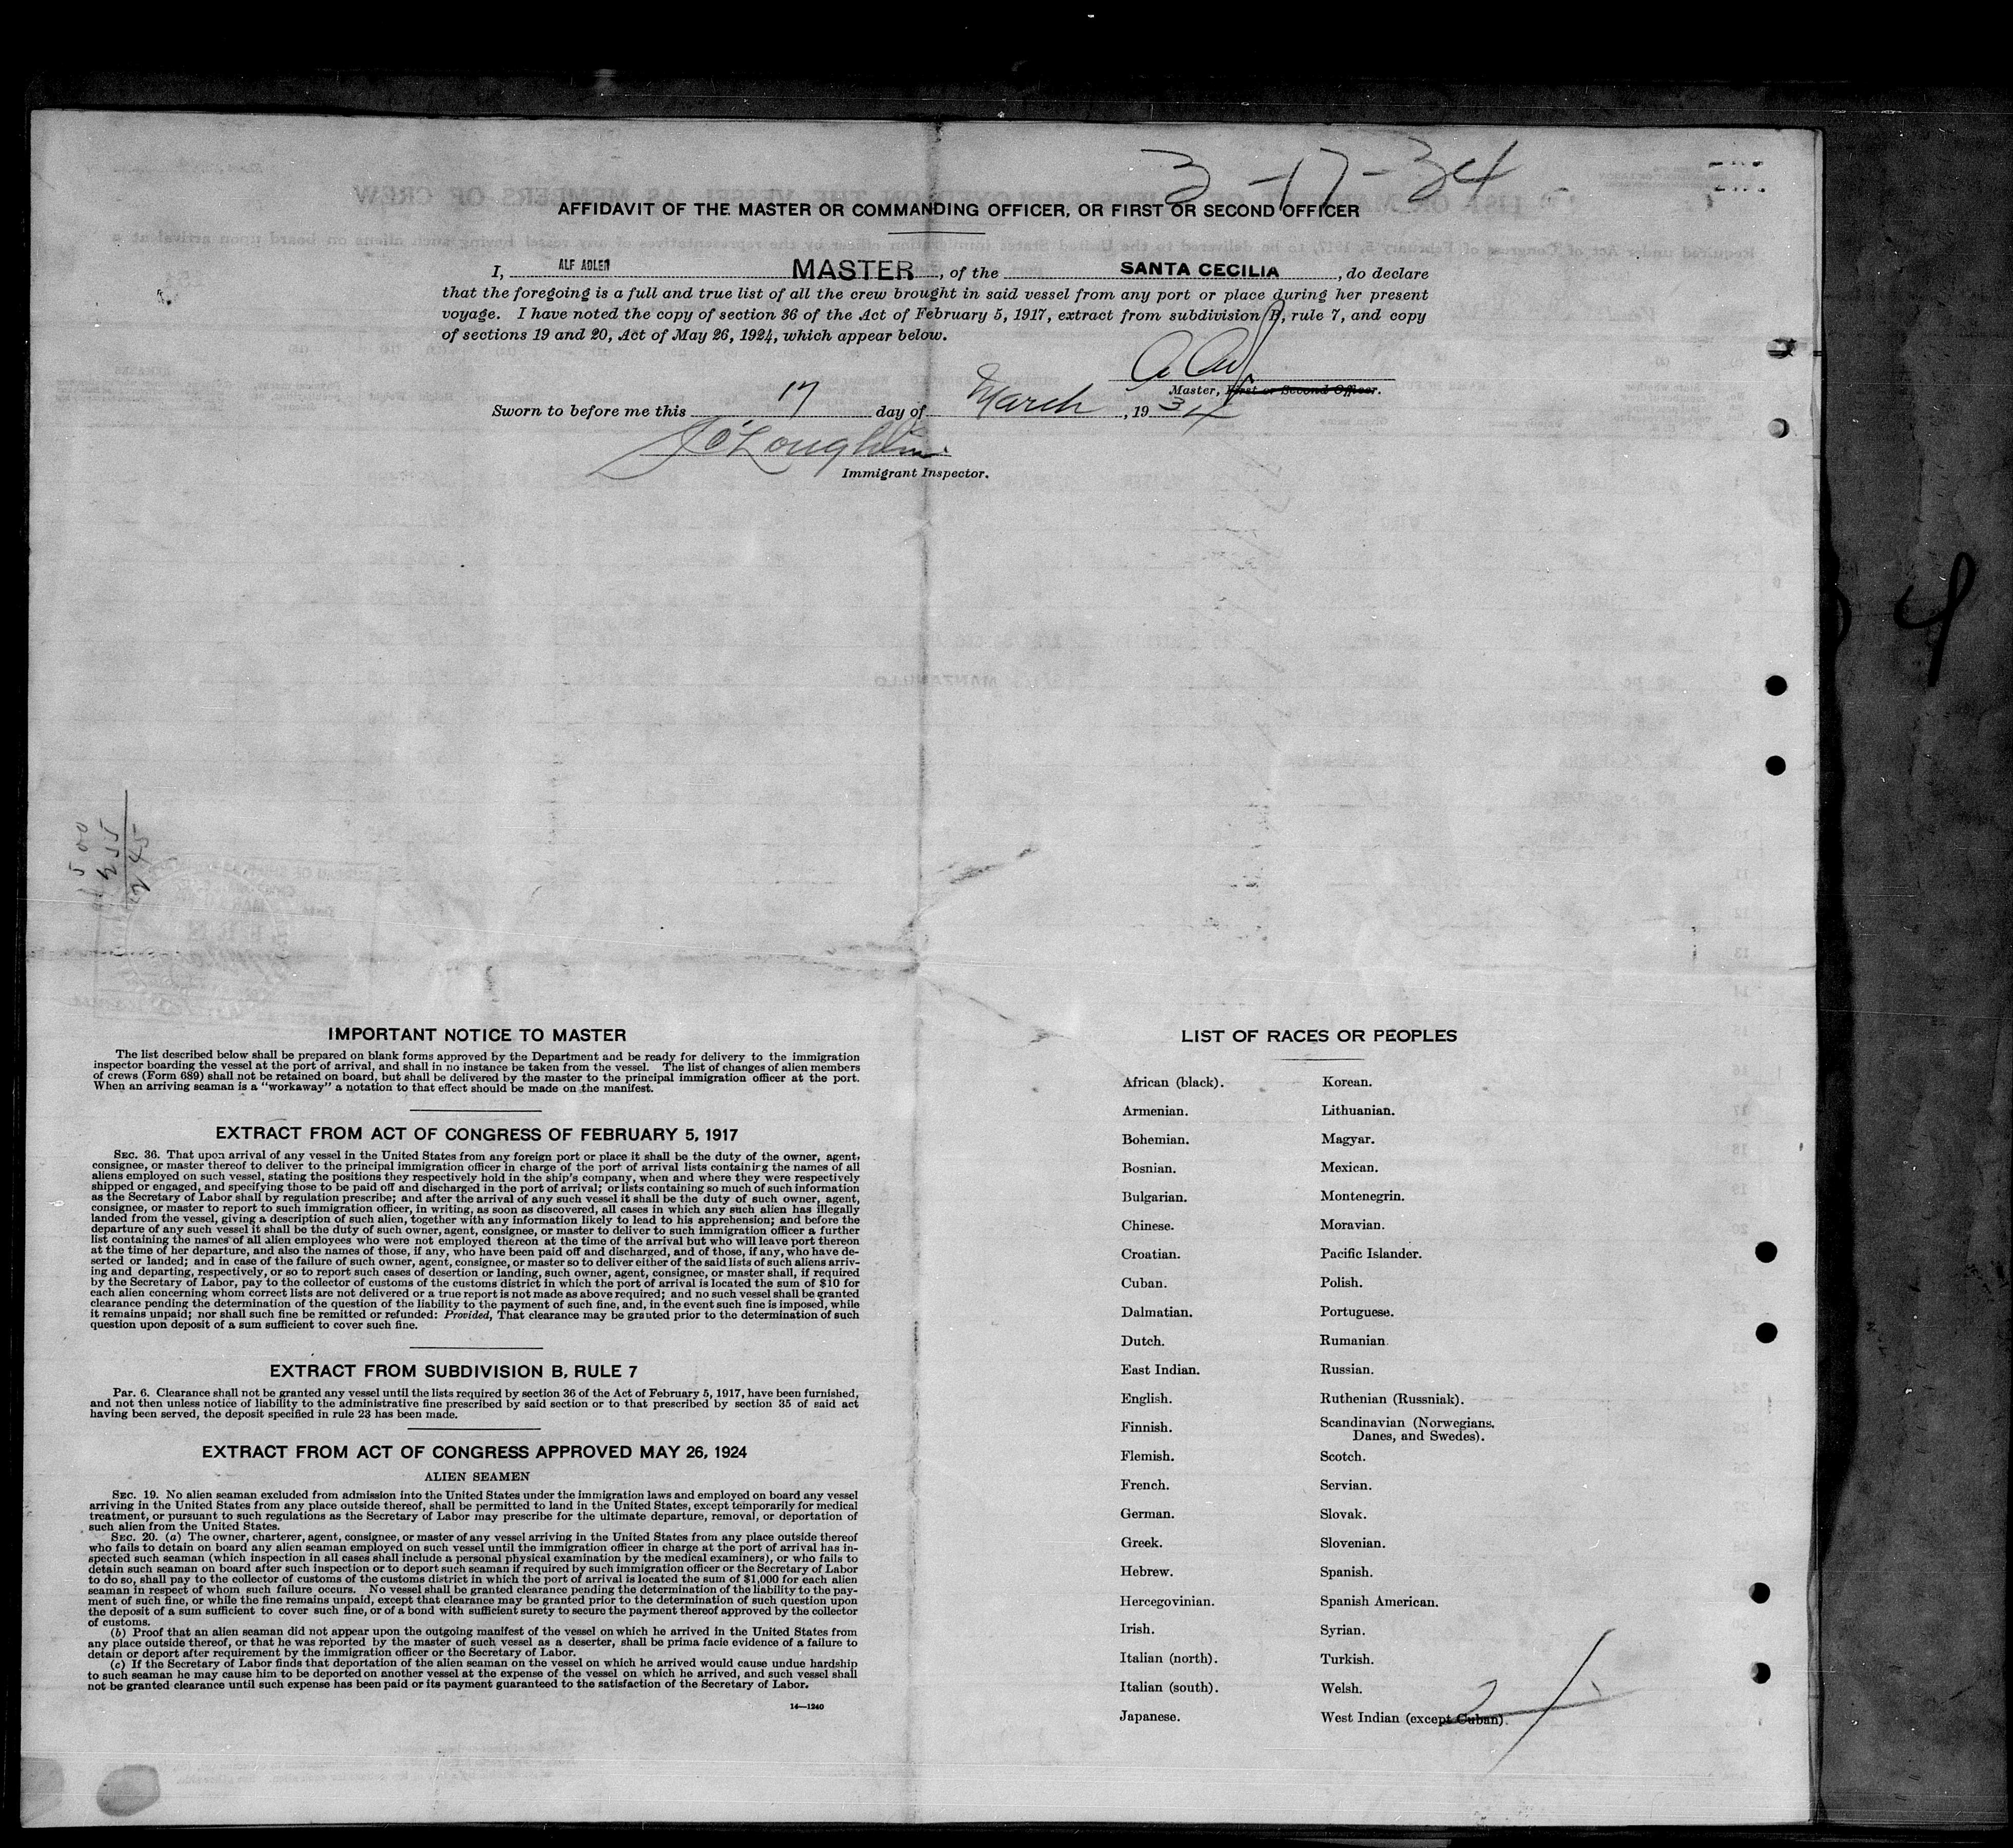 3-17-34
AFFIDAVIT OF THE MASTER OR COMMANDING OFFICER, OR FIRST OR SECOND OFFICER
I, ALF ADLER MASTER, of the SANTA CECILIA, do declare
that the foregoing is a full and true list of all the crew brought in said vessel from any port or place during her present
voyage. I have noted the copy of section 36 of the Act of February 5, 1917, extract from subdivision B, rule 7, and copy
of sections 19 and 20, Act of May 26, 1924, which appear below.
Master, First or Second Officer.
Sworn to before me this 17 day of March, 1934
J O'Loughlin
Immigrant Inspector.
5 00
2 55
2 45
IMPORTANT NOTICE TO MASTER
The list described below shall be prepared on blank forms approved by the Department and be ready for delivery to the immigration
inspector boarding the vessel at the port of arrival, and shall in no instance be taken from the vessel. The list of changes of alien members
of crews (Form 689) shall not be retained on board, but shall be delivered by the master to the principal immigration officer at the port.
When an arriving seaman is a "workaway" a notation to that effect should be made on the manifest.
EXTRACT FROM ACT OF CONGRESS OF FEBRUARY 5, 1917
SEC. 36. That upon arrival of any vessel in the United States from any foreign port or place it shall be the duty of the owner, agent,
consignee, or master thereof to deliver to the principal immigration officer in charge of the port of arrival lists containing the names of all
aliens employed on such vessel, stating the positions they respectively hold in the ship's company, when and where they were respectively
shipped or engaged, and specifying those to be paid off and discharged in the port of arrival; or lists containing so much of such information
as the Secretary of Labor shall by regulation prescribe; and after the arrival of any such vessel it shall be the duty of such owner, agent,
consignee, or master to report to such immigration officer, in writing, as soon as discovered, all cases in which any such alien has illegally
landed from the vessel, giving a description of such alien, together with any information likely to lead to his apprehension; and before the
departure of any such vessel it shall be the duty of such owner, agent, consignee, or master to deliver to such immigration officer a further
list containing the names of all alien employees who were not employed thereon at the time of the arrival but who will leave port thereon
at the time of her departure, and also the names of those, if any, who have been paid off and discharged, and of those, if any, who have de-
serted or landed; and in case of the failure of such owner, agent, consignee, or master so to deliver either of the said lists of such aliens arriv-
ing and departing, respectively, or so to report such cases of desertion or landing, such owner, agent, consignee, or master shall, if required
by the Secretary of Labor, pay to the collector of customs of the customs district in which the port of arrival is located the sum of $10 for
each alien concerning whom correct lists are not delivered or a true report is not made as above required; and no such vessel shall be granted
clearance pending the determination of the question of the liability to the payment of such fine, and, in the event such fine is imposed, while
it remains unpaid; nor shall such fine be remitted or refunded: Provided, That clearance may be granted prior to the determination of such
question upon deposit of a sum sufficient to cover such fine.
EXTRACT FROM SUBDIVISION B, RULE 7
Par. 6. Clearance shall not be granted any vessel until the lists required by section 36 of the Act of February 5, 1917, have been furnished,
and not then unless notice of liability to the administrative fine prescribed by said section or to that prescribed by section 35 of said act
having been served, the deposit specified in rule 23 has been made.
EXTRACT FROM ACT OF CONGRESS APPROVED MAY 26, 1924
ALIEN SEAMEN
SEC. 19. No alien seaman excluded from admission into the United States under the immigration laws and employed on board any vessel
arriving in the United States from any place outside thereof, shall be permitted to land in the United States, except temporarily for medical
treatment, or pursuant to such regulations as the Secretary of Labor may prescribe for the ultimate departure, removal, or deportation of
such alien from the United States.
SEC. 20. (a) The owner, charterer, agent, consignee, or master of any vessel arriving in the United States from any place outside thereof
who fails to detain on board any alien seaman employed on such vessel until the immigration officer in charge at the port of arrival has in-
spected such seaman (which inspection in all cases shall include a personal physical examination by the medical examiners), or who fails to
detain such seaman on board after such inspection or to deport such seaman if required by such immigration officer or the Secretary of Labor
to do so, shall pay to the collector of customs of the customs district in which the port of arrival is located the sum of $1,000 for each alien
seaman in respect of whom such failure occurs. No vessel shall be granted clearance pending the determination of the liability to the pay-
ment of such fine, or while the fine remains unpaid, except that clearance may be granted prior to the determination of such question upon
the deposit of a sum sufficient to cover such fine, or of a bond with sufficient surety to secure the payment thereof approved by the collector
of customs.
(b) Proof that an alien seaman did not appear upon the outgoing manifest of the vessel on which he arrived in the United States from
any place outside thereof, or that he was reported by the master of such vessel as a deserter, shall be prima facie evidence of a failure to
detain or deport after requirement by the immigration officer or the Secretary of Labor.
(c) If the Secretary of Labor finds that deportation of the alien seaman on the vessel on which he arrived would cause undue hardship
to such seaman he may cause him to be deported on another vessel at the expense of the vessel on which he arrived, and such vessel shall
not be granted clearance until such expense has been paid or its payment guaranteed to the satisfaction of the Secretary of Labor.
14—1240
LIST OF RACES OR PEOPLES
African (black).
Armenian.
Bohemian.
Bosnian.
Bulgarian.
Chinese.
Croatian.
Cuban.
Dalmatian.
Dutch.
East Indian.
English.
Finnish.
Flemish.
French.
German.
Greek.
Hebrew.
Hercegovinian.
Irish.
Italian (north).
Italian (south).
Japanese.
Korean.
Lithuanian.
Magyar.
Mexican.
Montenegrin.
Moravian.
Pacific Islander.
Polish.
Portuguese.
Rumanian.
Russian.
Ruthenian (Russniak).
Scandinavian (Norwegians,
Danes, and Swedes).
Scotch.
Servian.
Slovak.
Slovenian.
Spanish.
Spanish American.
Syrian.
Turkish.
Welsh.
West Indian (except Cuban).